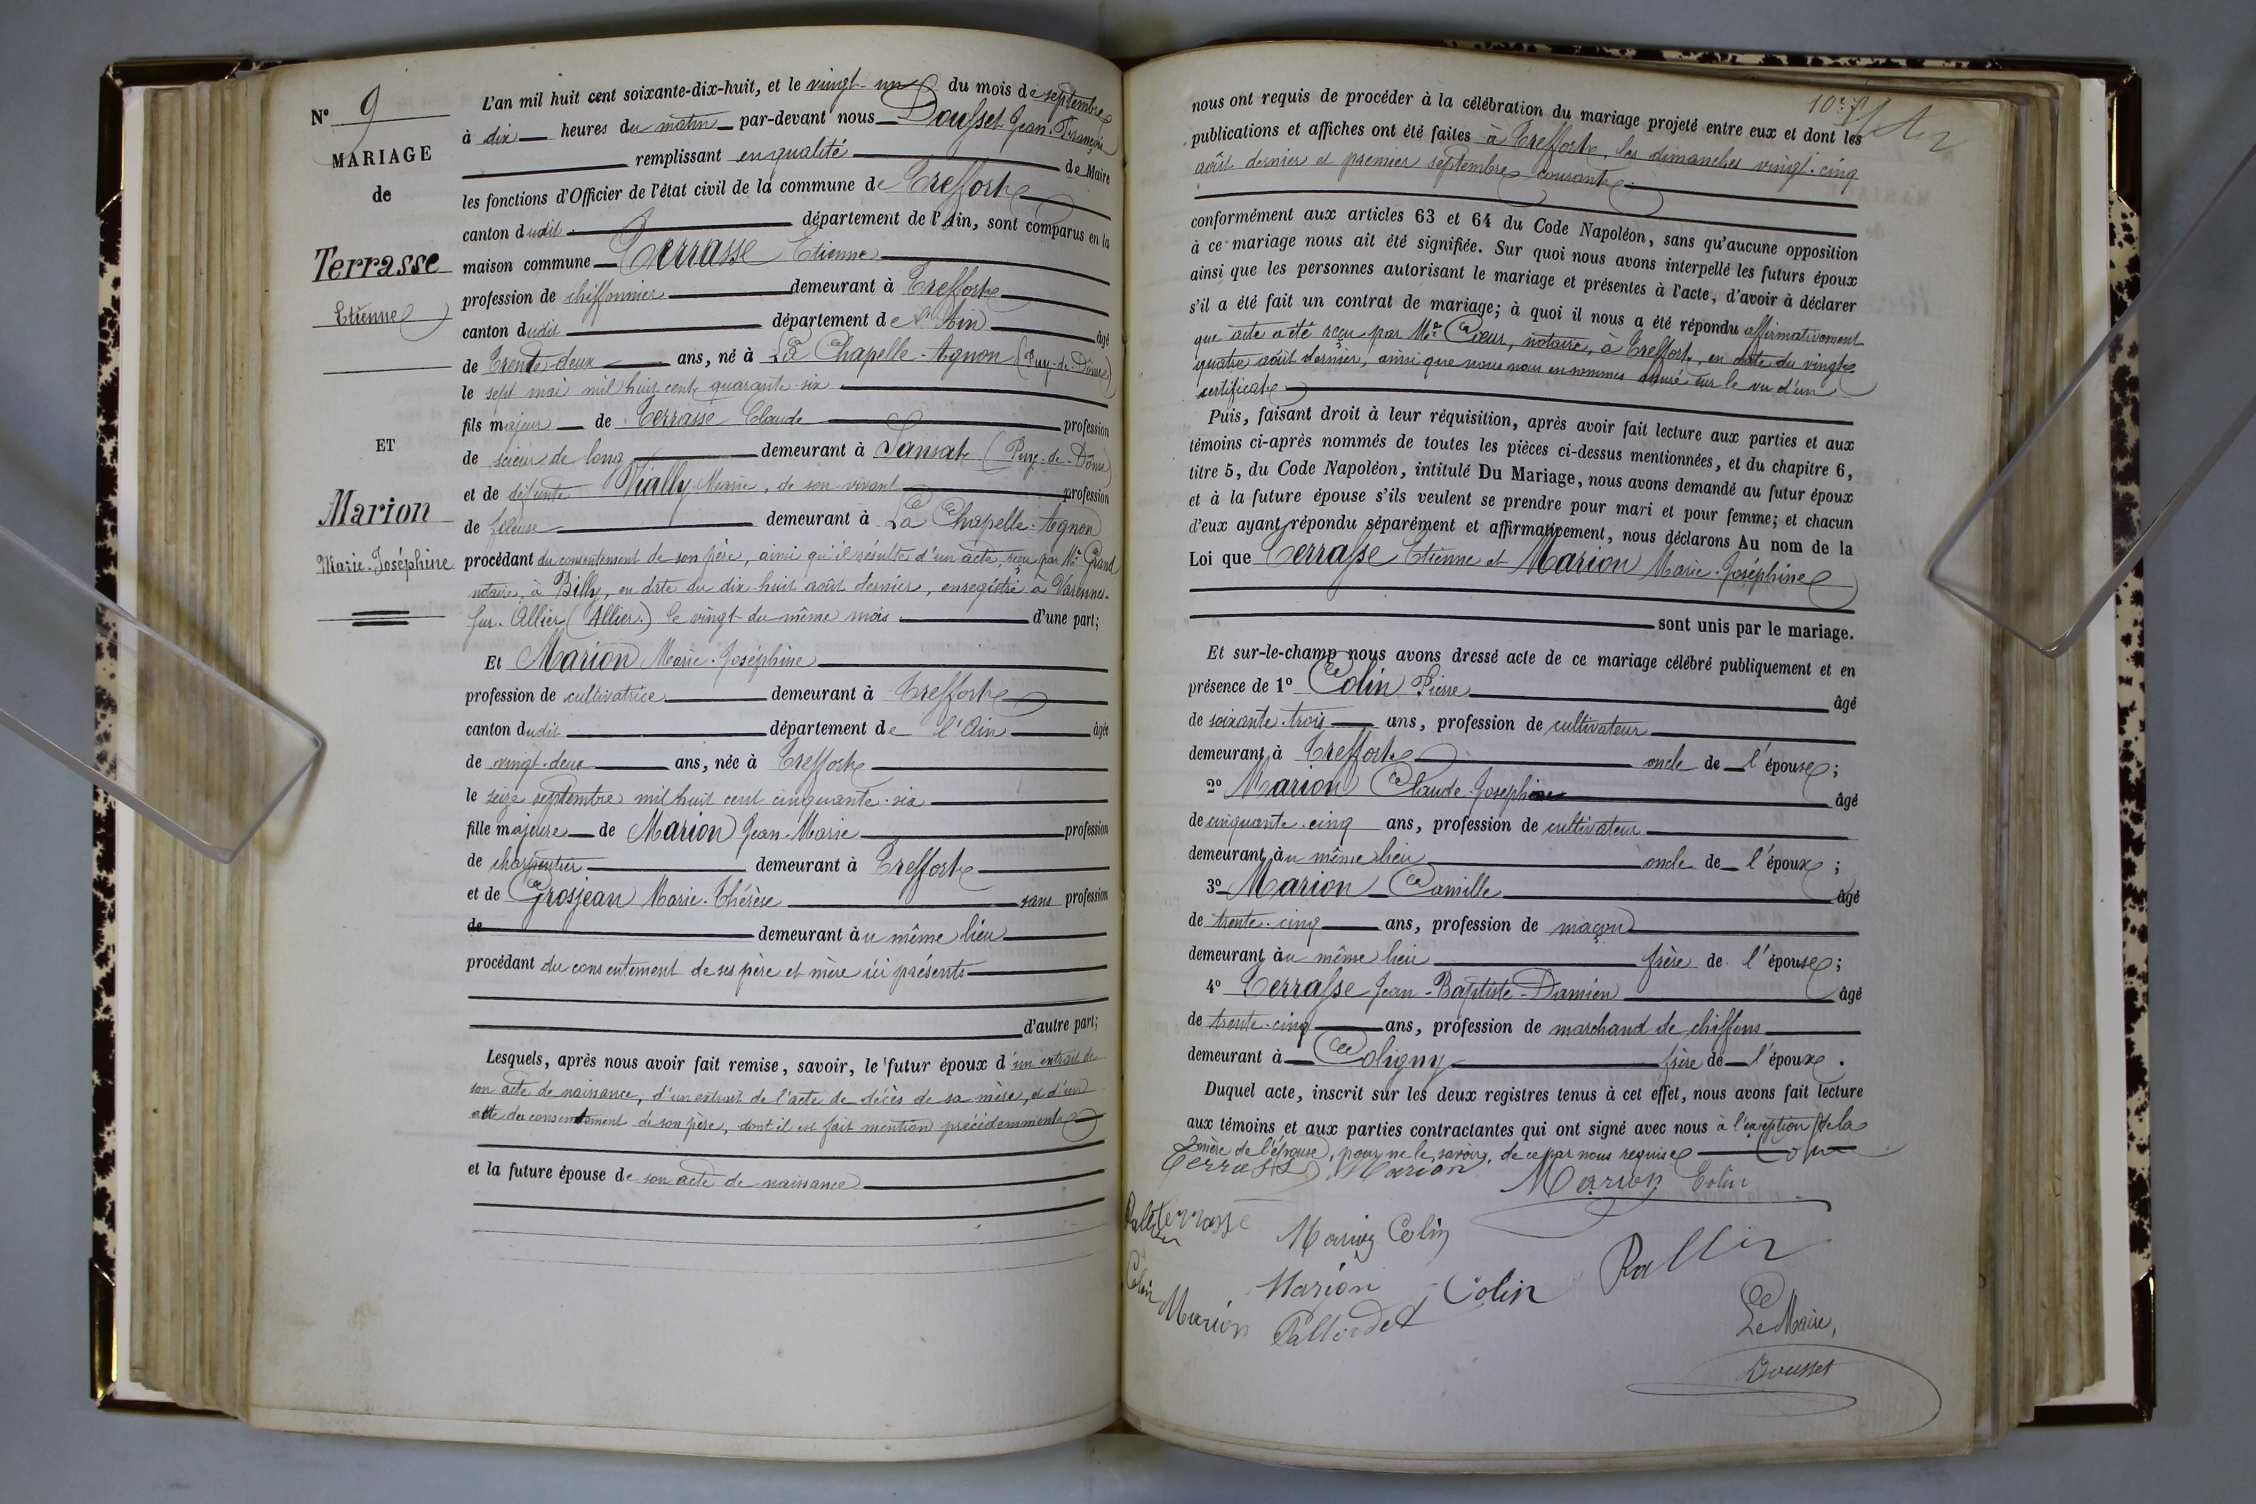 N° 9
MARIAGE
de
Terrasse
Etienne
ET
Marion
Marie-Joséphine
L'an mil huit cent soixante-dix-huit, et le vingt-un du mois de septembre
à dix heures du matin par-devant nous Dousset Jean-François
remplissant en qualité de Maire
les fonctions d'Officier de l'état civil de la commune de Treffort
canton dudit département de l'Ain, sont comparus en la
maison commune Terrasse Etienne
profession de chiffonnier demeurant à Treffort
canton dudit département de l'Ain âgé
de Trente-deux ans, né à La Chapelle-Agnon (Puy-de-Dôme)
le sept mai mil huit cent quarante-six
fils majeur de Terrasse Claude profession
de scieur de long demeurant à Sansat (Puy-de-Dôme)
et de défunte Vially Marie, de son vivant profession
de fileuse demeurant à La Chapelle-Agnon
procédant du consentement de son père, ainsi qu'il résulte d'un acte, reçu par Me Grand
notaire, à Billy, en date du dix-huit août dernier, enregistré à Varennes-
sur-Allier (Allier) le vingt du même mois d'une part;
Et Marion Marie-Joséphine
profession de cultivatrice demeurant à Treffort
canton dudit département de l'Ain âgée
de vingt-deux ans, née à Treffort
le seize septembre mil huit cent cinquante-six
fille majeure de Marion Jean-Marie profession
de charpentier demeurant à Treffort
et de Grosjean Marie-Thérèse sans profession
de demeurant au même lieu
procédant du consentement de ses père et mère ici présents
d'autre part;
Lesquels, après nous avoir fait remise, savoir, le futur époux d'un extrait de
son acte de naissance, d'un extrait de l'acte de décès de sa mère, et d'un
acte de consentement de son père, dont il est fait mention précédemment
et la future épouse de son acte de naissance
nous ont requis de procéder à la célébration du mariage projeté entre eux et dont les
publications et affiches ont été faites à Treffort, les dimanches vingt-cinq
août dernier et premier septembre courant
conformément aux articles 63 et 64 du Code Napoléon, sans qu'aucune opposition
à ce mariage nous ait été signifiée. Sur quoi nous avons interpellé les futurs époux
ainsi que les personnes autorisant le mariage et présentes à l'acte, d'avoir à déclarer
s'il a été fait un contrat de mariage; à quoi il nous a été répondu affirmativement
que acte a été reçu par Me Cœur, notaire, à Treffort, en date du vingt
quatre août dernier, ainsi que nous nous en sommes assuré sur le vu d'un
certificat
Puis, faisant droit à leur réquisition, après avoir fait lecture aux parties et aux
témoins ci-après nommés de toutes les pièces ci-dessus mentionnées, et du chapitre 6,
titre 5, du Code Napoléon, intitulé Du Mariage, nous avons demandé au futur époux
et à la future épouse s'ils veulent se prendre pour mari et pour femme; et chacun
d'eux ayant répondu séparément et affirmativement, nous déclarons Au nom de la
Loi que Terrasse Etienne et Marion Marie-Joséphine
sont unis par le mariage.
Et sur-le-champ nous avons dressé acte de ce mariage célébré publiquement et en
présence de 1° Colin Pierre âgé
de soixante-trois ans, profession de cultivateur
demeurant à Treffort oncle de l'épouse;
2° Marion Claude-Joseph âgé
de cinquante-cinq ans, profession de cultivateur
demeurant au même lieu oncle de l'épouse;
3° Marion Camille âgé
de trente-cinq ans, profession de maçon
demeurant au même lieu frère de l'épouse;
4° Terrasse Jean-Baptiste-Damien âgé
de trente-cinq ans, profession de marchand de chiffons
demeurant à Coligny frère de l'époux.
Duquel acte, inscrit sur les deux registres tenus à cet effet, nous avons fait lecture
aux témoins et aux parties contractantes qui ont signé avec nous à l'exception de la
mère de l'épouse, pour ne le savoir, de ce par nous requise Colin
Terrasse Marion Marion Colin
Terrasse Marion Colin
Colin Marion Marion Colin
Le Maire,
Dousset